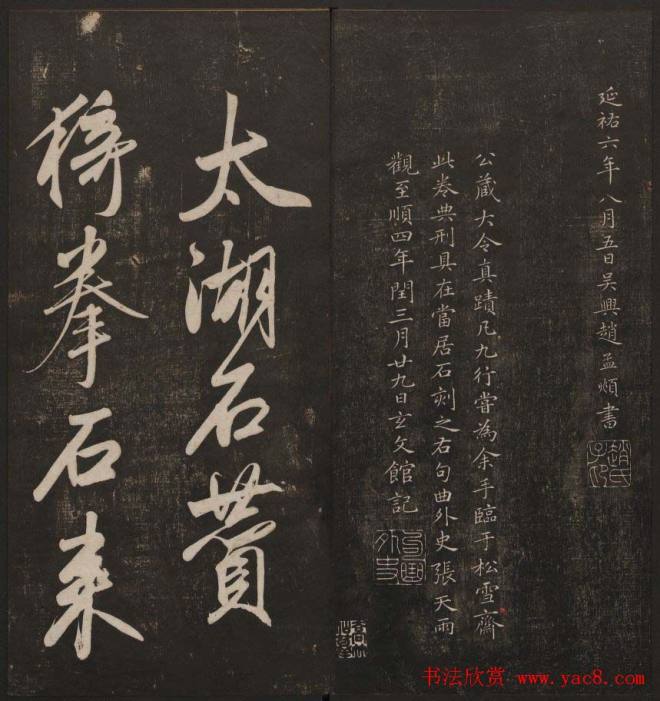 延祐六年八月五日吳興趙孟頫書
趙氏子卬
公藏大令真蹟凡九行嘗為余手臨于松雪齋
此卷典刑具在當居石刻之右句曲外史張天雨
觀至順四年閏三月廿九日玄文館記
句曲外史
太湖石贊
猗拳石來
书法欣赏 www.yac8.com